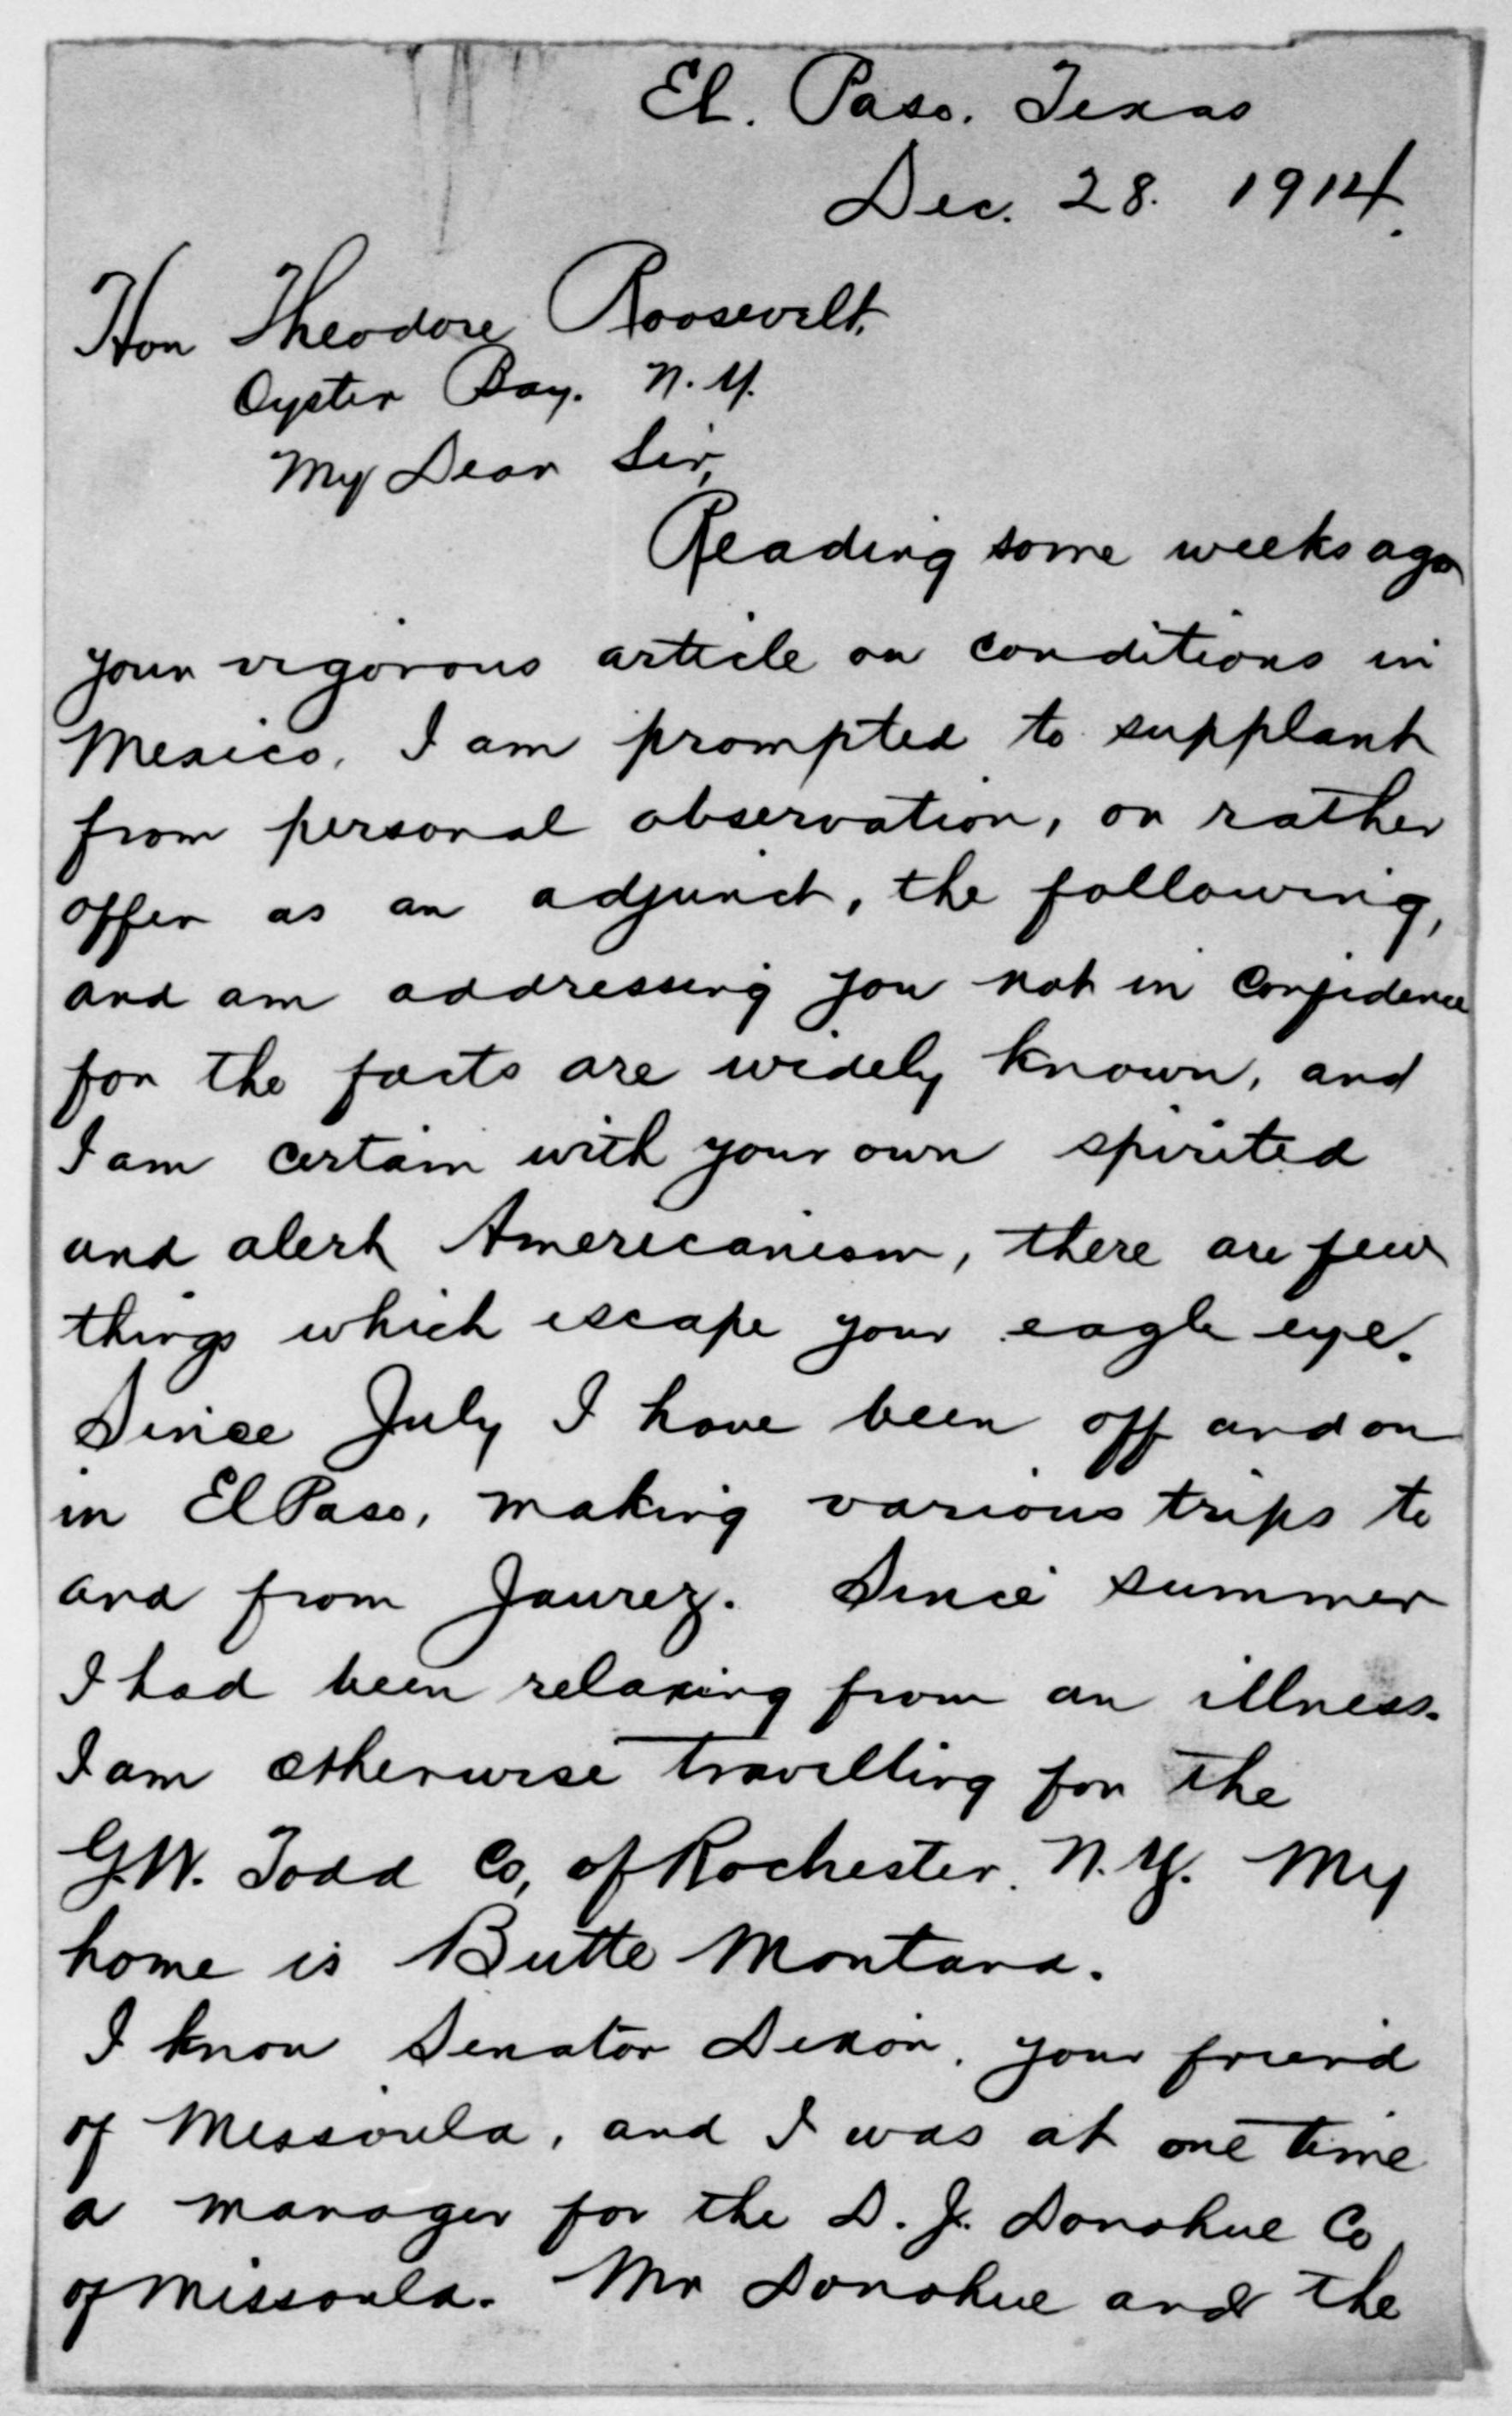 El. Paso. Texas
Dec. 28. 1914.
Hon Theodore Roosevelt,
Oyster Bay. N.Y.
My Dear Sir,
Reading some weeks ago
your vigorous article on conditions in
Mexico, I am prompted to supplant
from personal observation, or rather
offer as an adjunct, the following,
and am addressing you not in confidence
for the facts are widely known, and
I am certain with your own spirited
and alert Americanism, there are few
things which escape your eagle eye.
Since July I have been off and on
in El Paso, making various trips to
and from Jaurez. Since summer
I had been relaxing from an illness.
I am otherwise travelling for the
G.W. Todd Co, of Rochester. N.Y. My
home is Butte Montana.
I know Senator Dixon, your friend
of Missoula, and I was at one time
a manager for the D. J. Donohue Co,
of Missoula. Mr Donohue and the